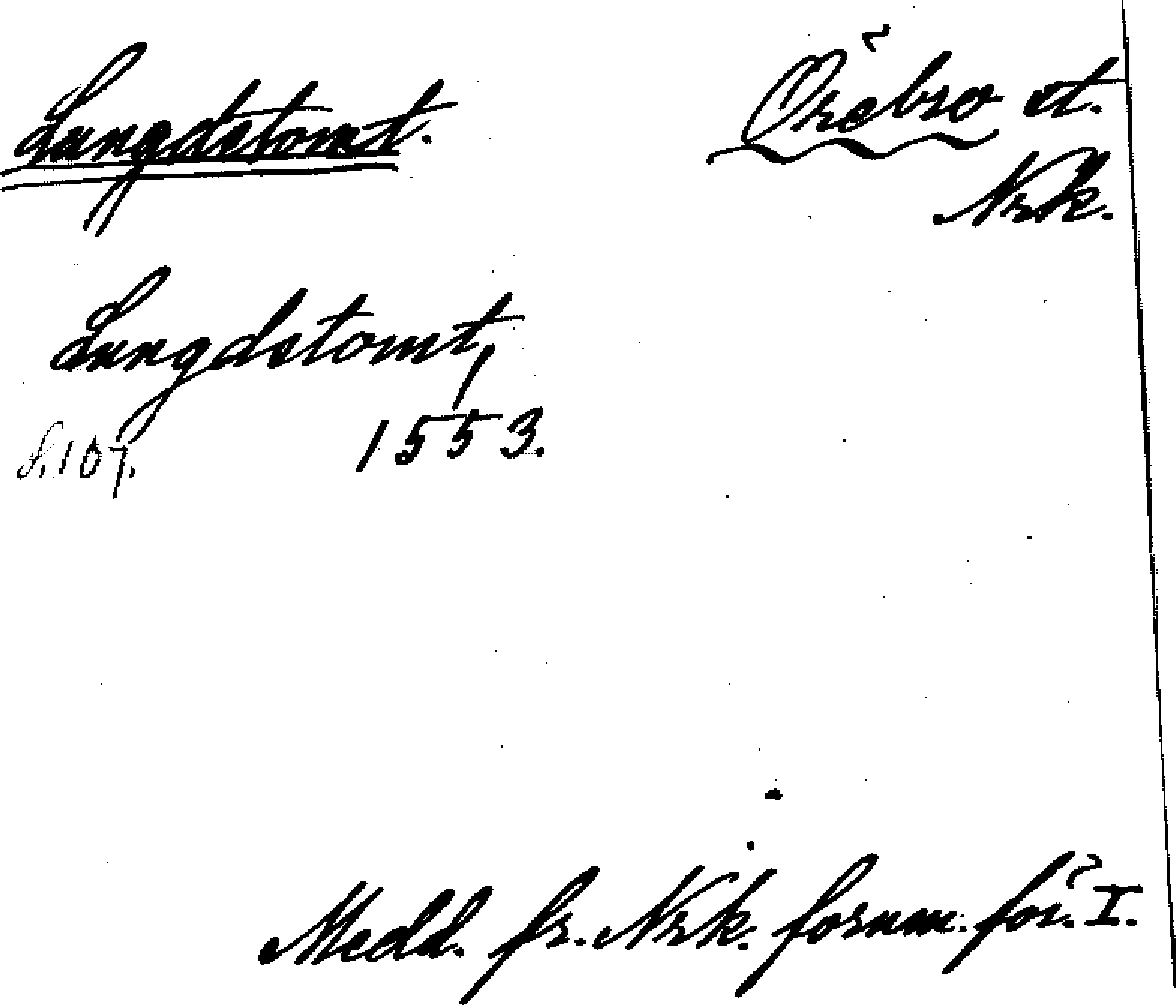 Lungdstomt. Örebro st.
Nrk.
Lungdstomt,
1553.
S. 107.
Medd. fr. Nrk. fornm. för. I.